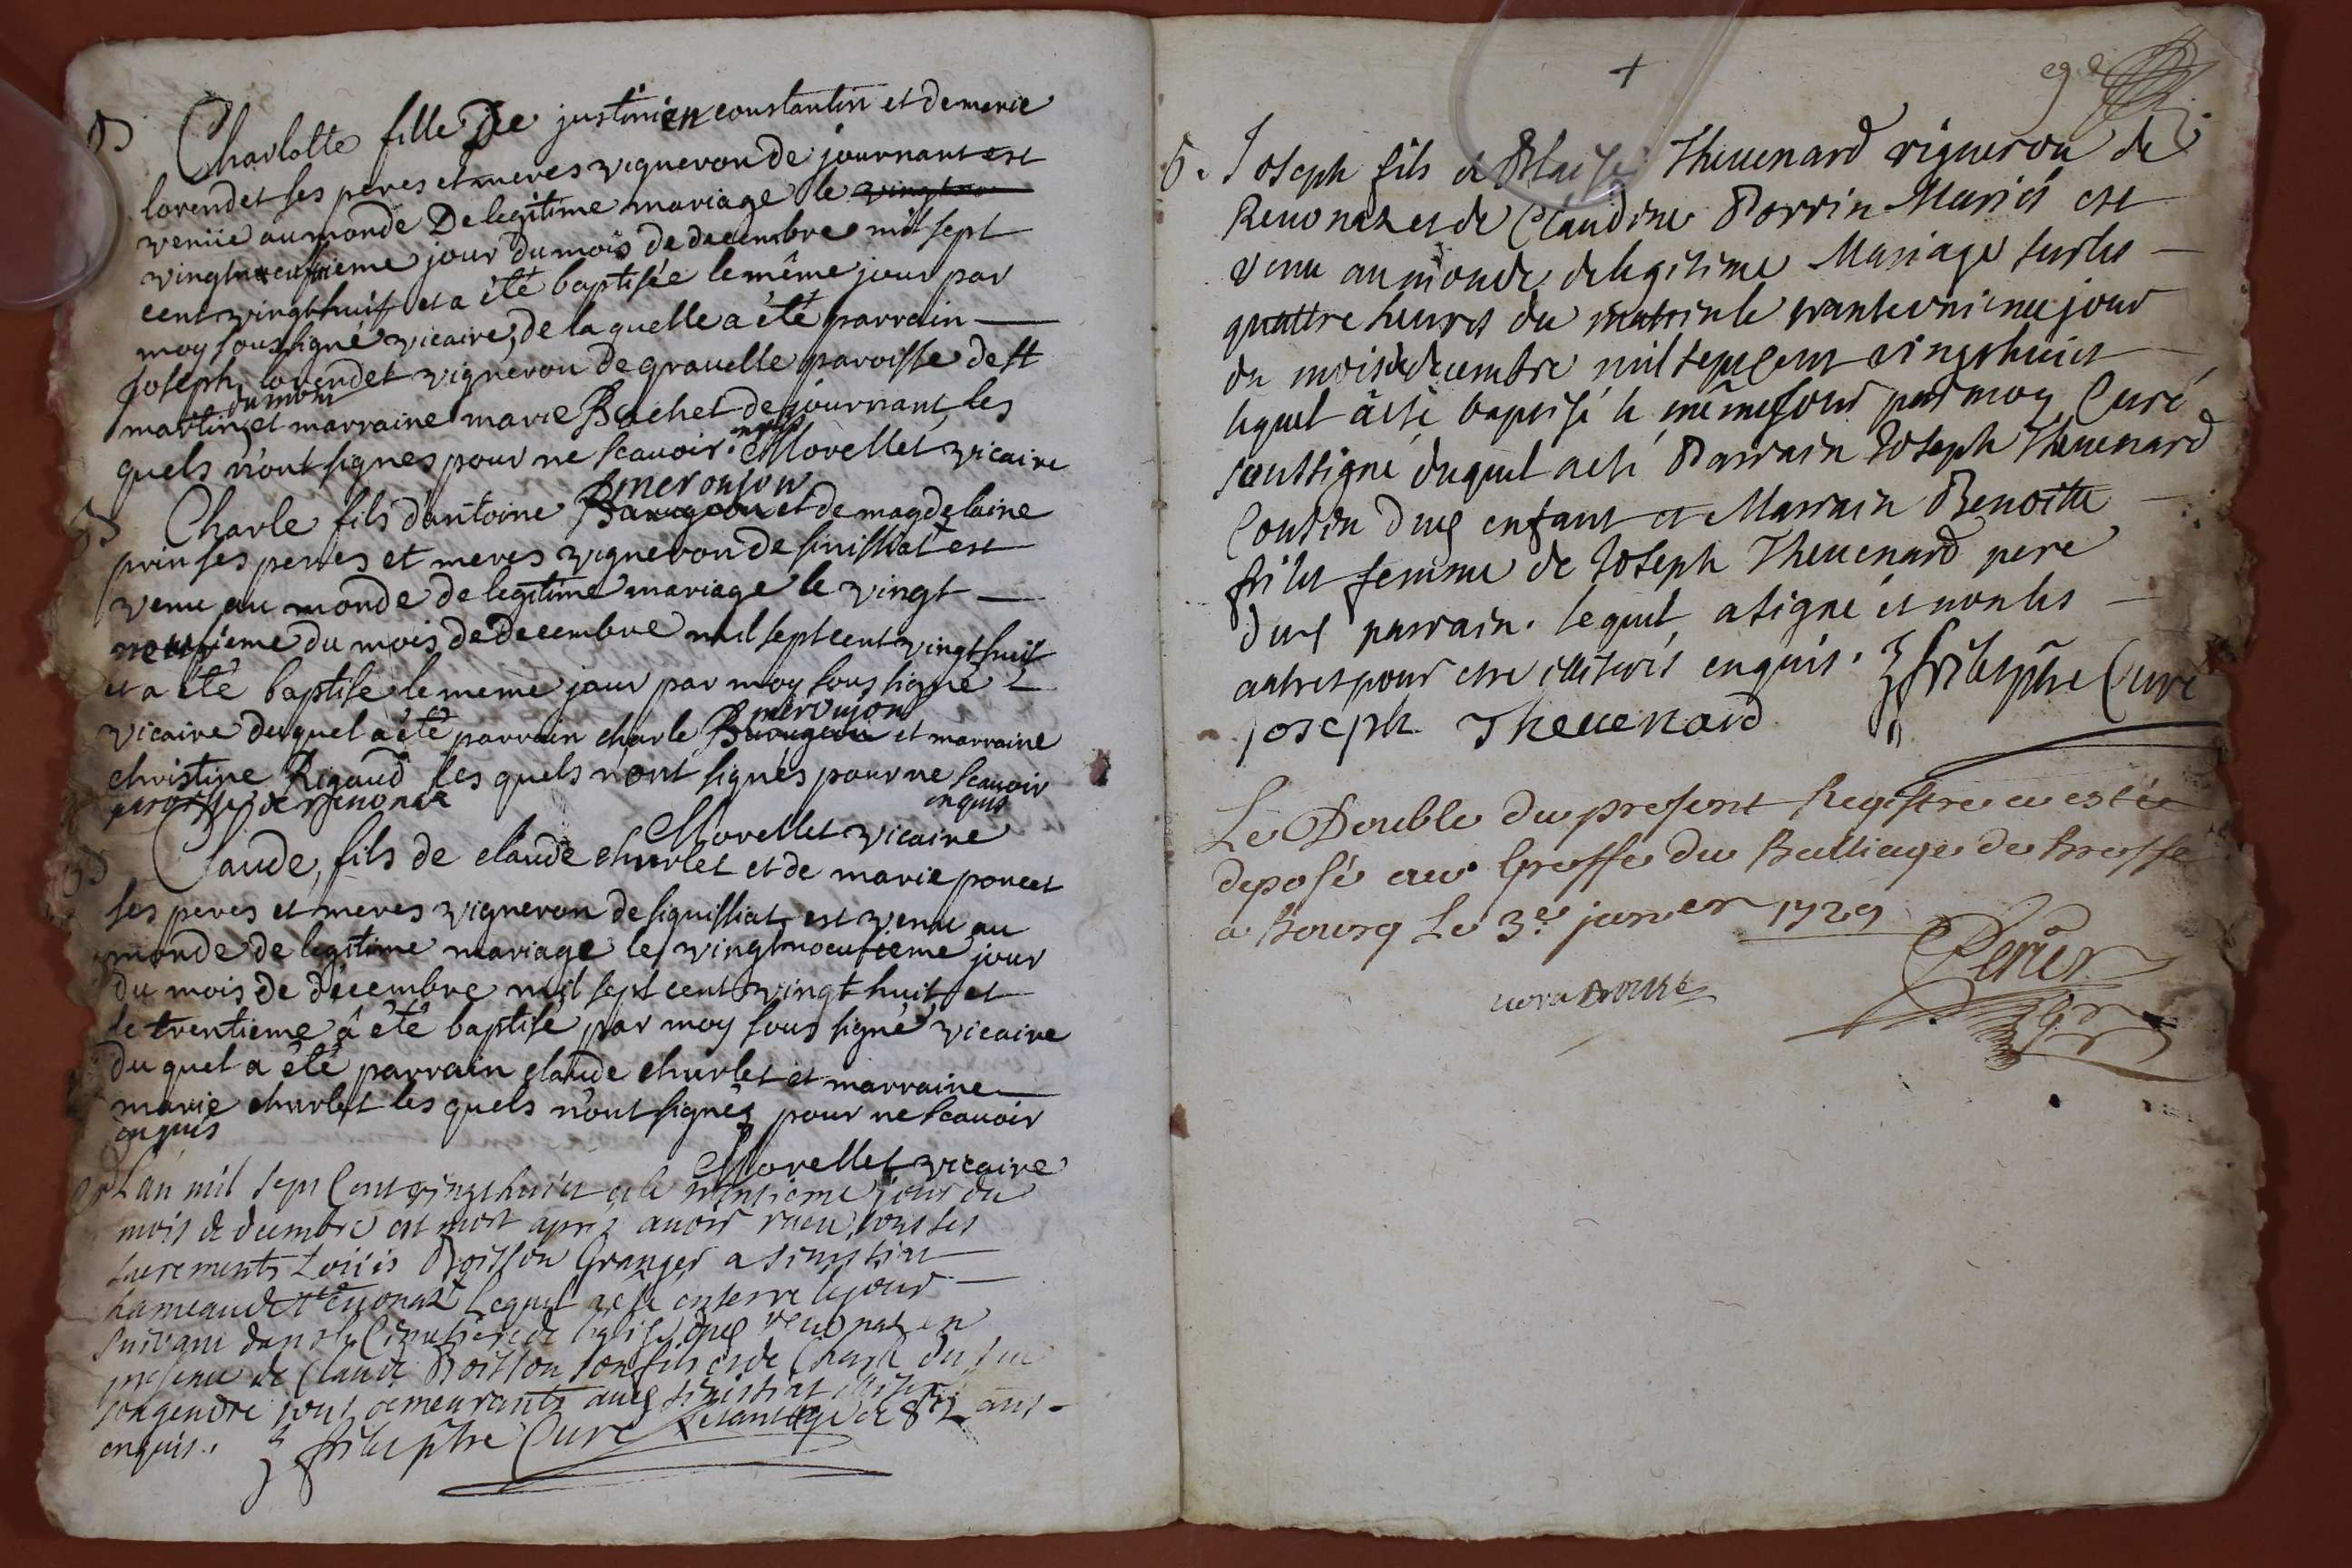 B Charlotte fille De justinien constantin et de marie
lorendet ses peres et meres vigneron de journant est
venüe au monde De legitime mariage le vingtne
vingtneufvieme jour du mois de decembre mil sept
cent vingthuit et a été baptisée le même jour par
moy soussigné vicaire, de la quelle a été parrain
Joseph lorendet vigneron de gravelle paroisse de st
du mont
martin, et marraine marie Bachet de journant, les
quels n'ont signes pour ne scavoir enquis Morellet vicaire
meronjon
B Charle fils dantoine et de magdelaine
prin ses peres et meres vigneron de sinissiat est
venu au monde de legitime mariage le vingt
neufvieme du mois de Decembre mil sept cent vingthuit
et a été baptise le meme jour par moy sous signé
meronjon
vicaire duquel a été parrain charle et marraine
christine Rigaud les quels n'ont signés pour ne scavoir
enquis
paroisse de revonaz
Morellet vicaire
B Claude, fils de claude churlet et de marie poncet
ses peres et meres vigneron de siquissiat est venu au
monde de legitime mariage le vingtnoeufieme jour
du mois de décembre mil sept cent vingt huit et
le trentieme â été baptisé par moy sous signé vicaire
du quel a été parrain claude churlet et marraine
marie churlet les quels n'ont signés pour ne scavoir
enquis
Morellet vicaire
Lan mil sept Cent vingthuict et le trentieme jour du
mois de decembre est mort apres avoir receu tous ses
sacrements Loüis Boisson Granger a sinissiat
hameau de Reuonaz Lequel a esté enterre le jour
suivant dans le Cimetiere de l'église dud revonaz en
presence de Claude Boisson son fils et de Charle
son gendre tous demeurants aud sinissiat
enquis. frilet ptre Curé Estant agé de 82 ans
+
9e
B. Joseph fils de Blaise Theuenard vigneron de
Reuonaz et de Claudine Perrin Mariés est
venu au monde de legitime Mariage sur les
quattre heures du matin le trante unieme jour
du mois de decembre mil sept cent vingthuict
lequel à esté baptisé le même jour par moy Curé
soussigné duquel a esté Parrain Joseph Theuenard
Cousin dud enfant et Marrain Benoitte
frilet femme de Joseph Theuenard pere
dud parrain. lequel a signé et non les
autres pour estre illiterés enquis. frilet ptre Curé
joseph Theuenard
Le Double du present Registre a esté
deposé au Greffe du Bailliage de Bresse
a Bourg Le 3e. janvier 1729
Perier